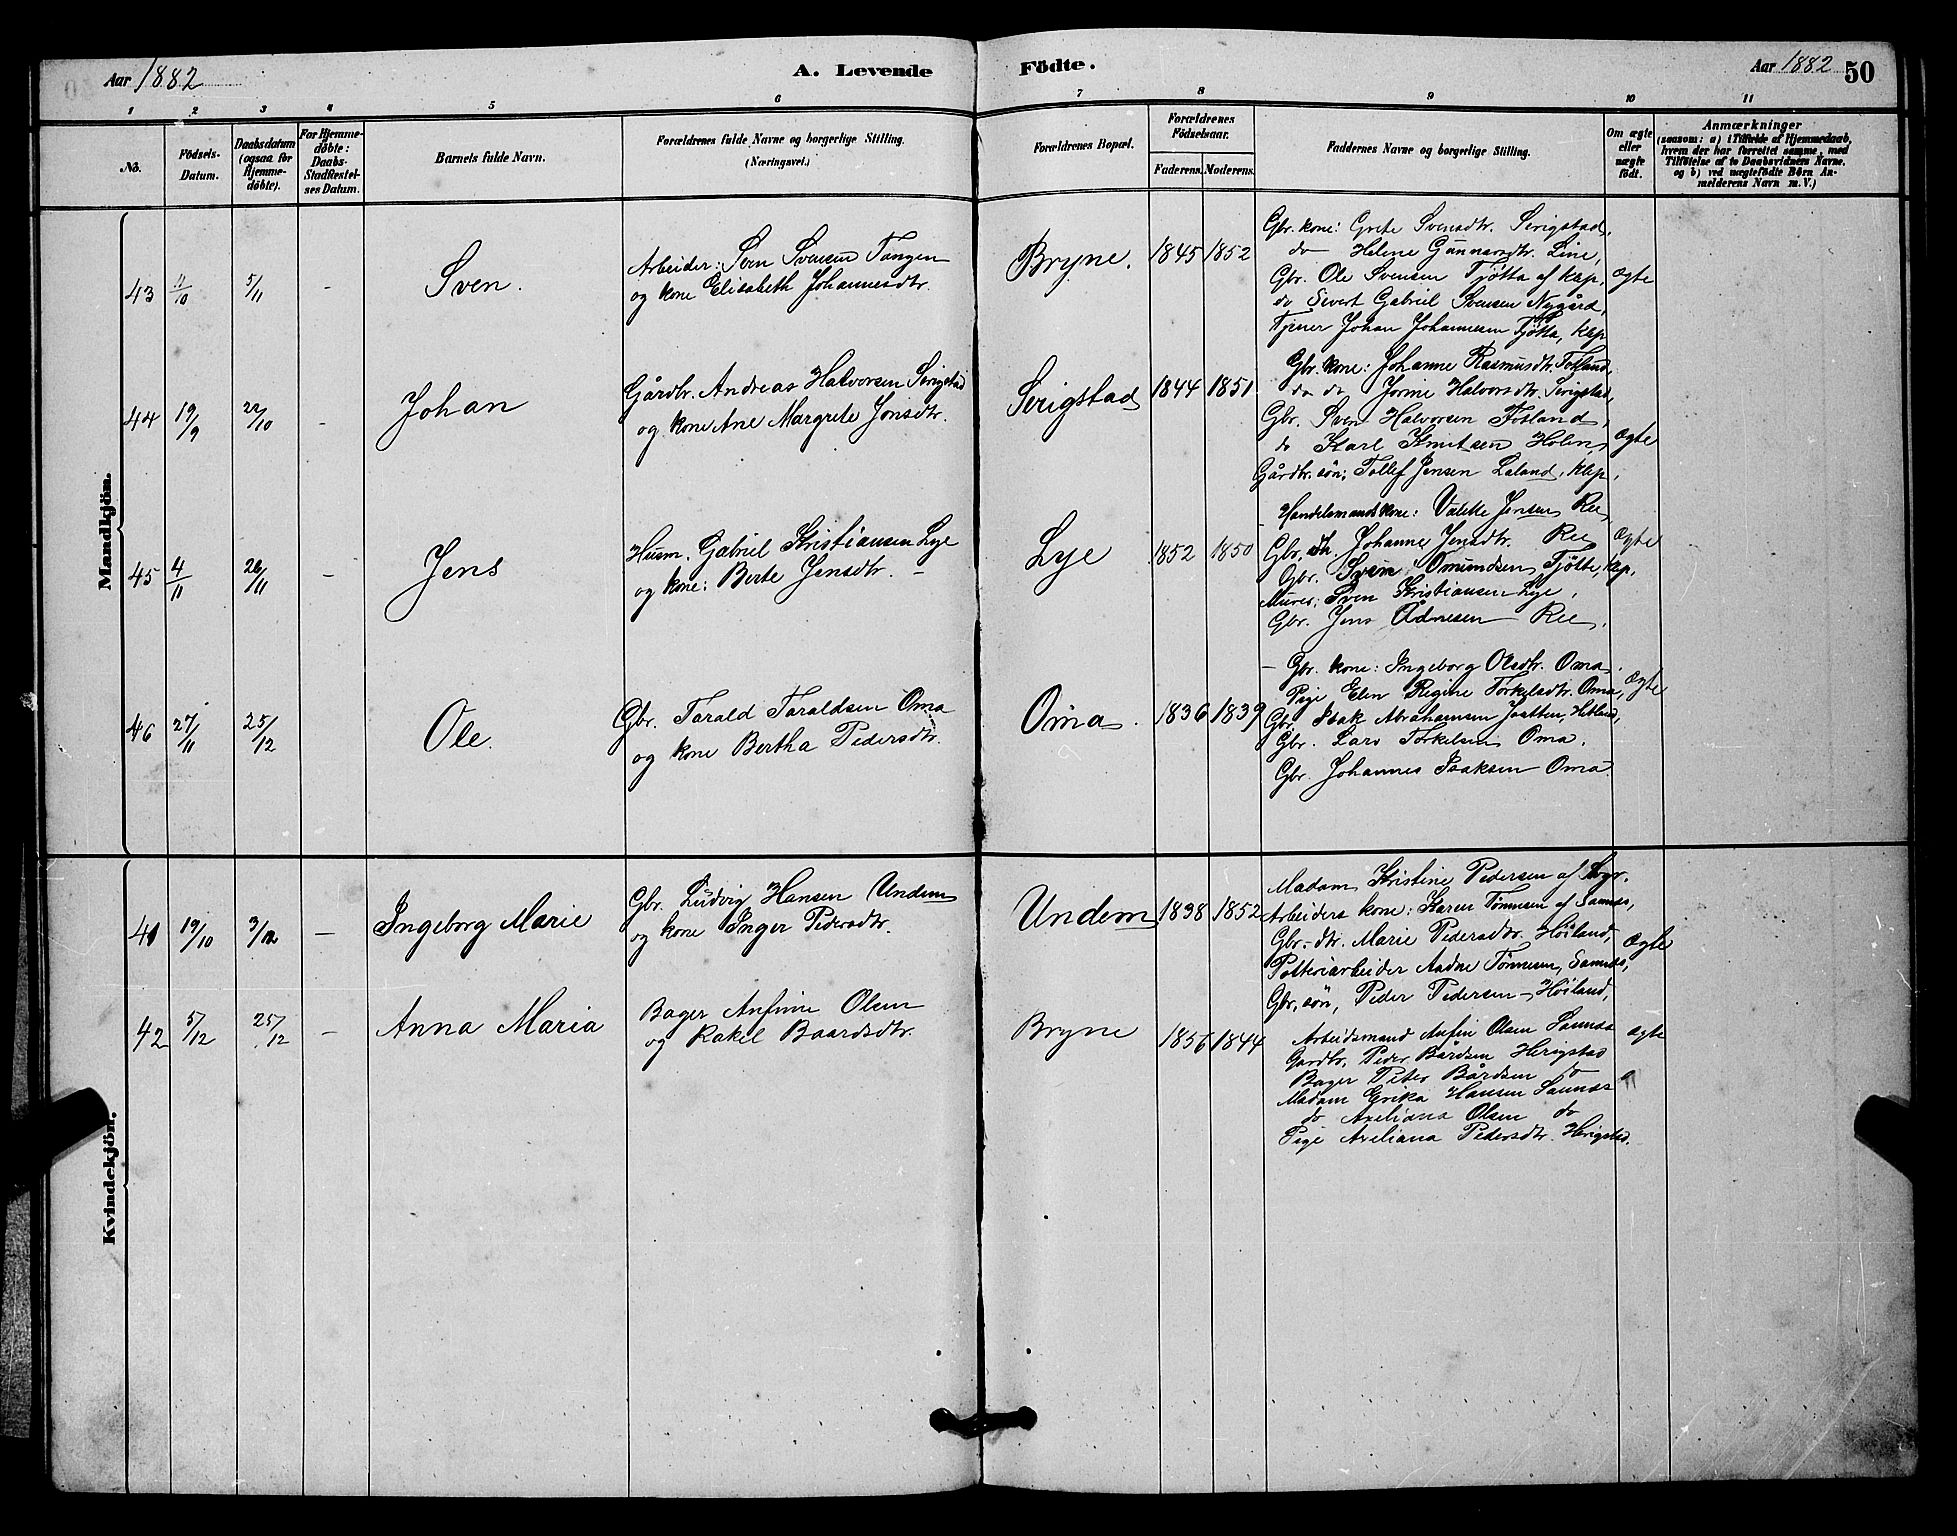 Aar 1882 A. Levende Födte. Aar 1882 50
1 2 3 4 5 6 7 8 9 10 11
No. Födsels-Datum. Daabsdatum (ogsaa for Hjemmedöbte). For Hjemmedöbte: Daabs-Stadfæstelses Datum. Barnets fulde Navn. Forældrenes fulde Navne og borgerlige Stilling. (Næringsvei.) Forældrenes Bopæl. Forældrenes Födselsaar. Faderens. Moderens. Faddernes Navne og borgerlige Stilling. Om ægte eller uægte födt. Anmærkninger (saasom: a) i Tilfælde af Hjemmedaab, hvem der har forrettet samme, med Tilföielse af to Daabsvidners Navne, og b) ved uægtefödte Börn Anmelderens Navn m. V.)
Mandkjön.
43 11/10 5/11 - Sven. Arbeider: Sven Svensen Tangen
og kone Elisabeth Johannesdtr. Bryne. 1845 1852
Gbr. kone: Grete Svensdtr. Serigstad,
do Helene Gunnarsdtr. Line,
Gbr. Ole Svensen Tjøtta af Klep, ægte
do Sivert Gabriel Svensen Nygård,
Tjener Johan Johannesen Tjøtta, Klep
44 19/9 22/10 - Johan Gårdbr. Andreas Halvorsen Serigstad
og kone Ane Margrete Jonsdtr. Serigstad 1844 1851
Gbr. kone: Johanne Rasmusdtr. Fotland,
do do Jorine Halvorsdtr. Serigstad,
Gbr. Sven Halvorsen Fosland,
do Karl Knutsen Holen, ægte
Gårdbr. søn: Tollef Jensen Laland, Klep,
45 4/11 26/11 - Jens Husm. Gabriel Kristiansen Lye
og kone: Berte Jensdtr. - Lye 1852 1850
Handelsmands kone: Valette Jensen Ree,
Gbr. dtr. Johanne Jensdtr. Ree ægte
Gbr. Sven Omundsen Tjøtta, Klp.
Murer: Sven Kristiansen Lye,
Gbr. Jens Ådnesen Ree.
46 27/11 25/12 Ole. Gbr. Tarald Taraldsen Oma
og kone Bertha Pedersdtr. Oma. 1836 1839
- Gbr. kone: Ingeborg Olsdtr. Oma.
Pige Elen Regine Torkelsdtr. Oma, ægte
Gbr. Isak Abrahamsen Jaatten, Hetland,
Gbr. Lars Torkelsen Oma.
Gbr. Johannes Isaksen Oma.
Kvindekjön.
41 19/10 3/12 - Ingeborg Marie Gbr. Ludvig Hansen Undem
og kone Inger Pedersdtr. Undem 1838 1852
Madam Kristine Pedersen af
Arbeiders kone: Karen Tønnesen af Sannes,
Gbr. dtr. Marie Pedersdtr. Høiland, ægte
Potteriarbeider Aadne Tønnesen, Sannes,
Gbr. søn, Peder Pedersen - Høiland,
42 5/12 25/12 - Anna Maria Bager Anfinn Olsen
og Rakel Baardsdtr. Bryne 1856 1844
Arbeidsmand Anfin Olsen Sannes ægte
Gardbr. Peder Bårdsen Herigstad
Bager Peter Bårdsen do
Madam Erika Hansen Sannes
do Axeliana Olsen do
Pige Axeliana Pedersdtr. Herigstad.